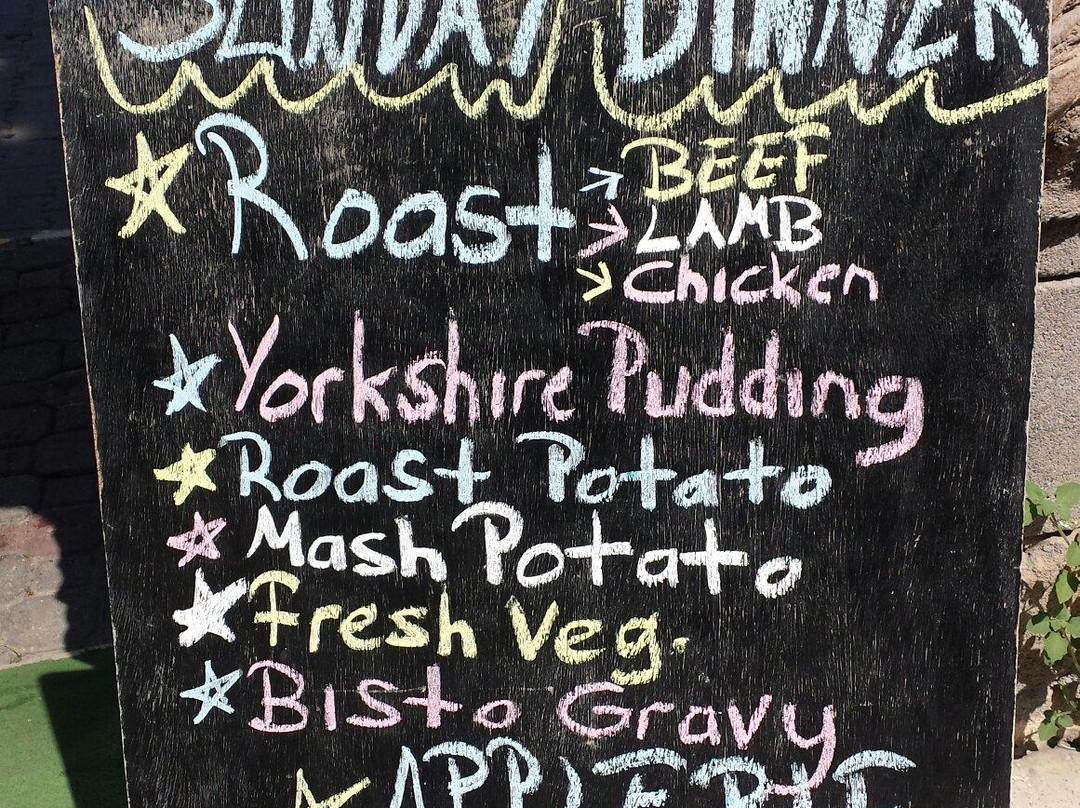 SUNDAY DINNER
Roast
BEEF
LAMB
Chicken
Yorkshire Pudding
Roast Potato
Mash Potato
Fresh Veg.
Bisto Gravy